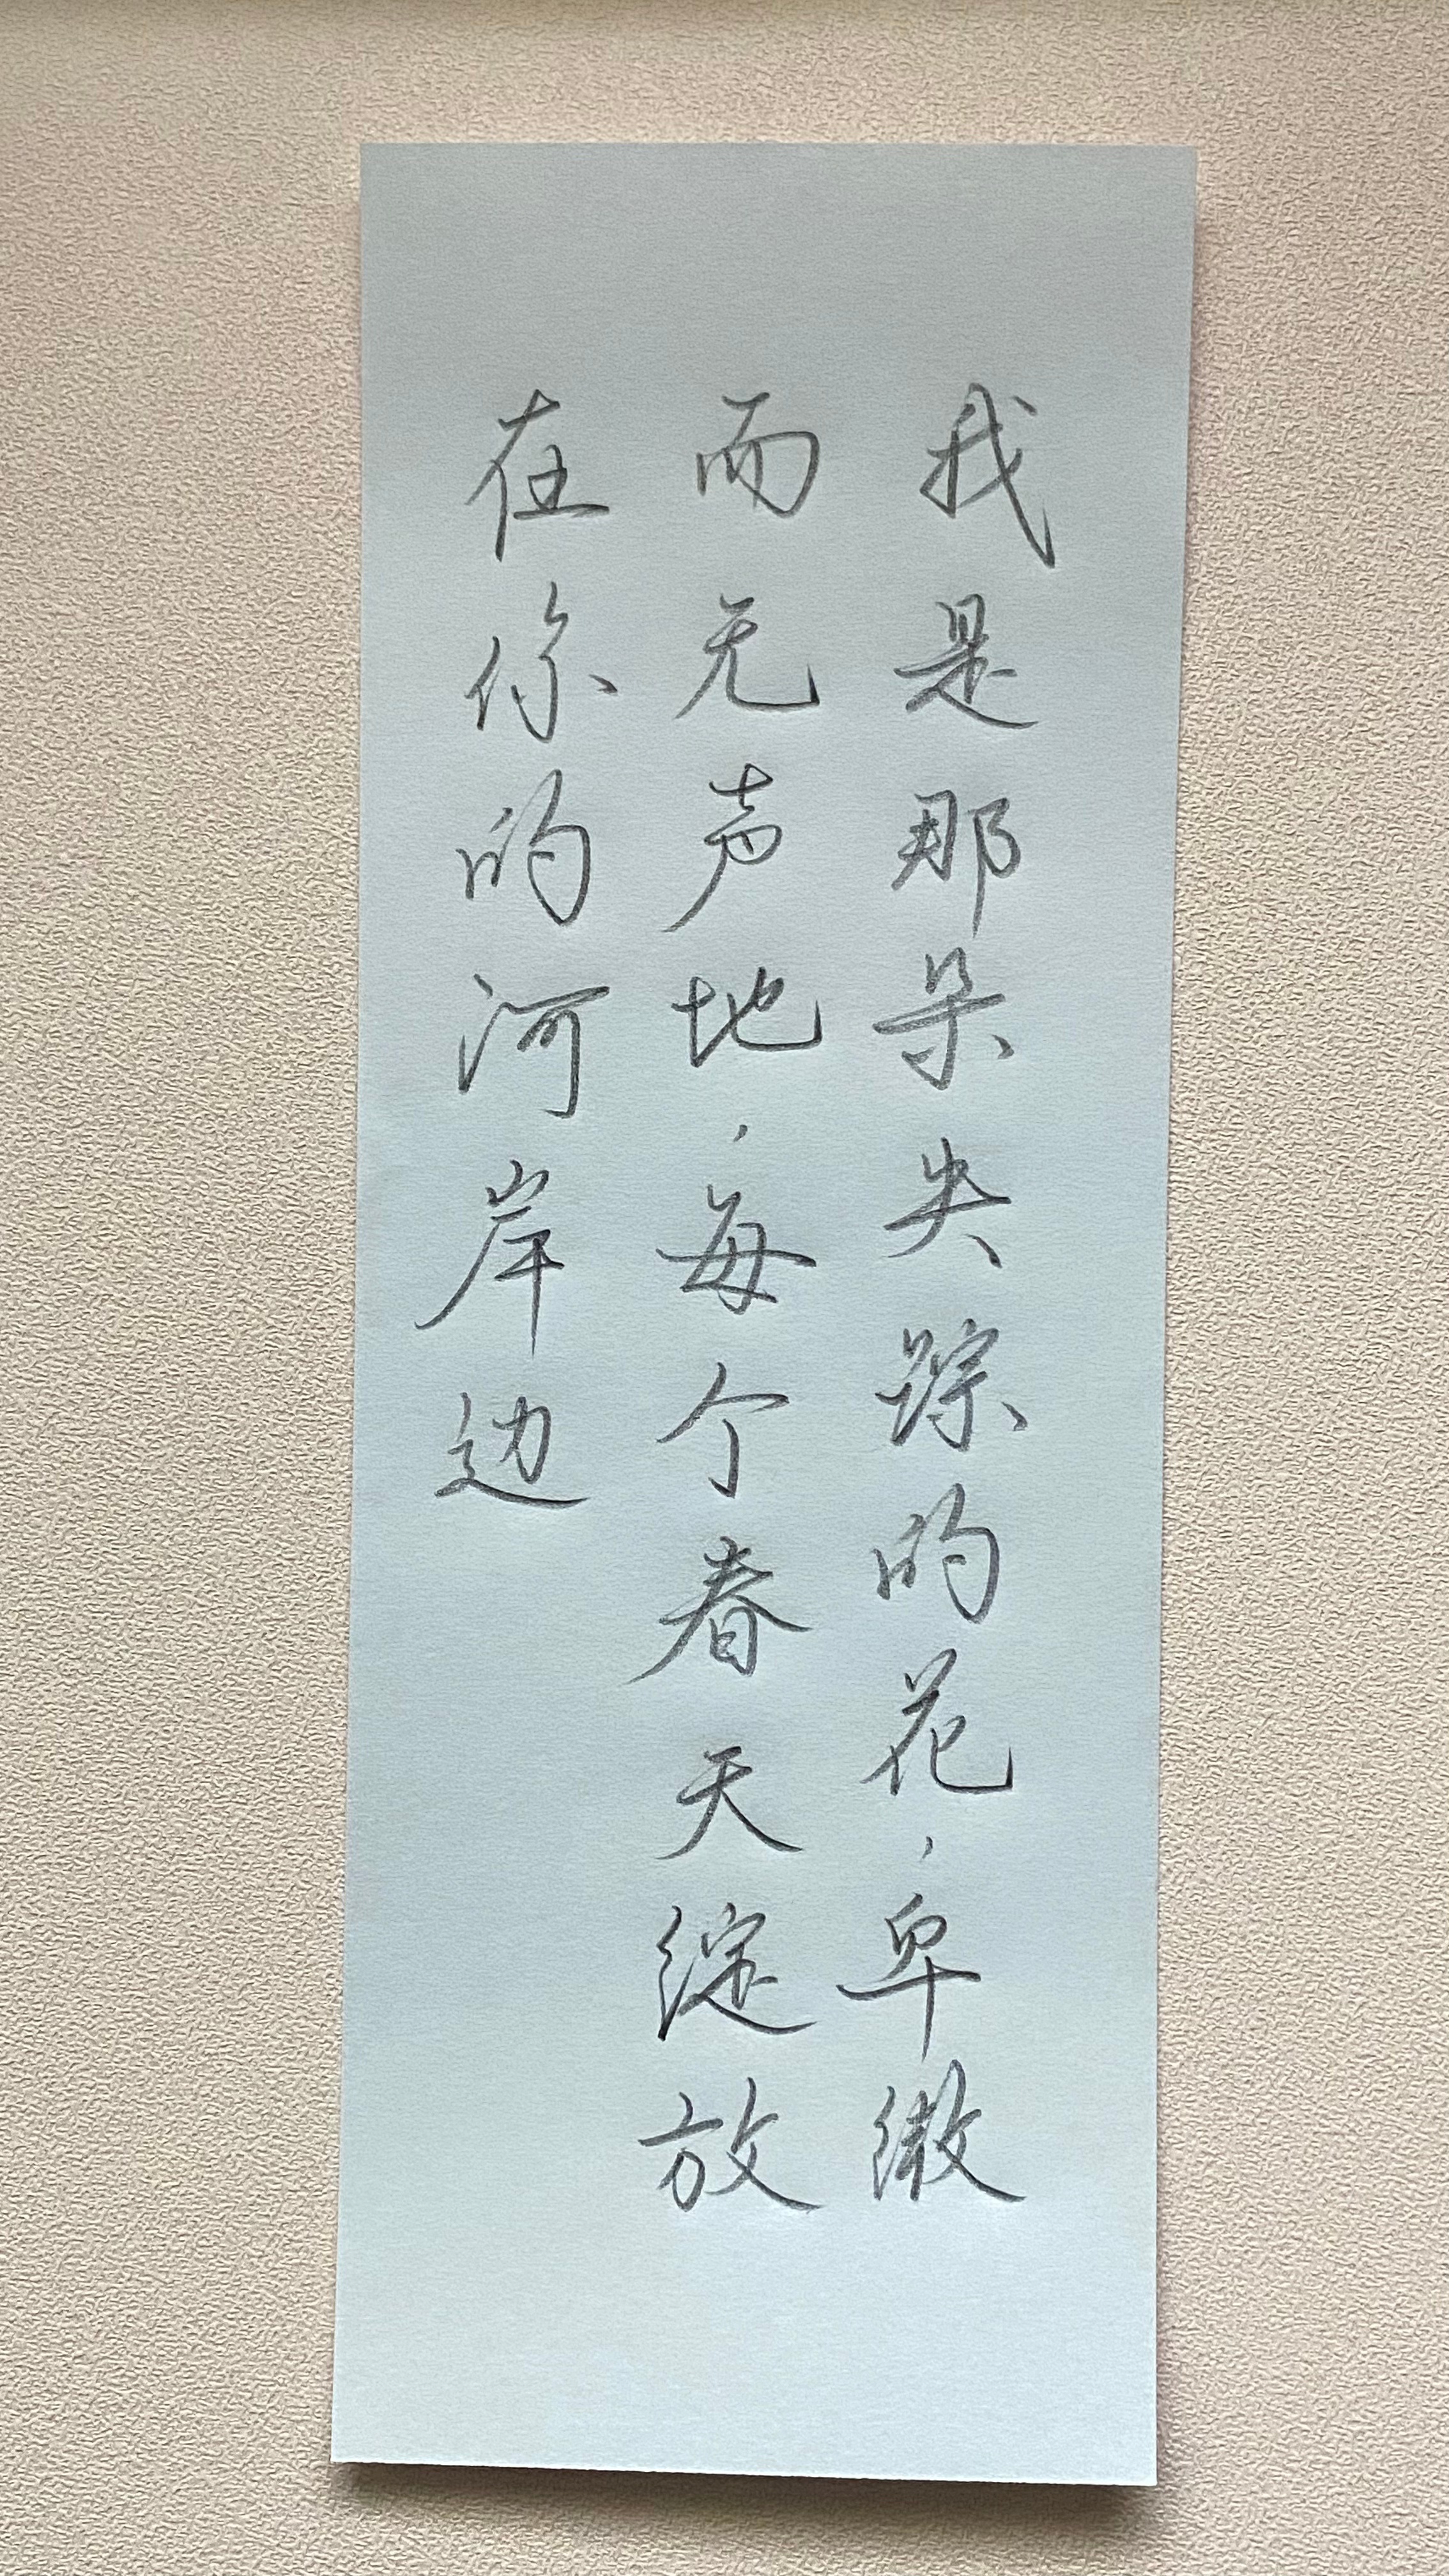 我是那朵失踪的花，卑微
而无声地，每个春天绽放
在你的河岸边